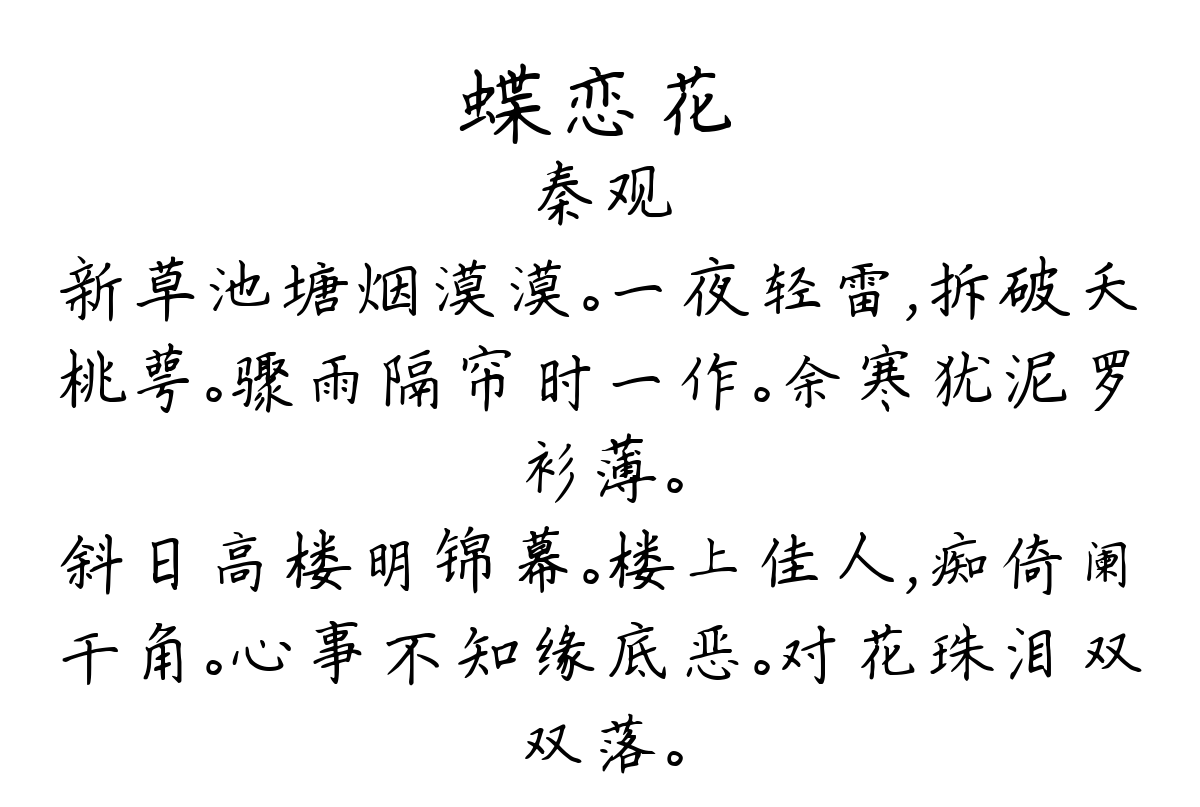 蝶恋花
秦观
新草池塘烟漠漠。一夜轻雷,拆破夭
桃萼。骤雨隔帘时一作。余寒犹泥罗
衫薄。
斜日高楼明锦幕。楼上佳人,痴倚阑
干角。心事不知缘底恶。对花珠泪双
双落。